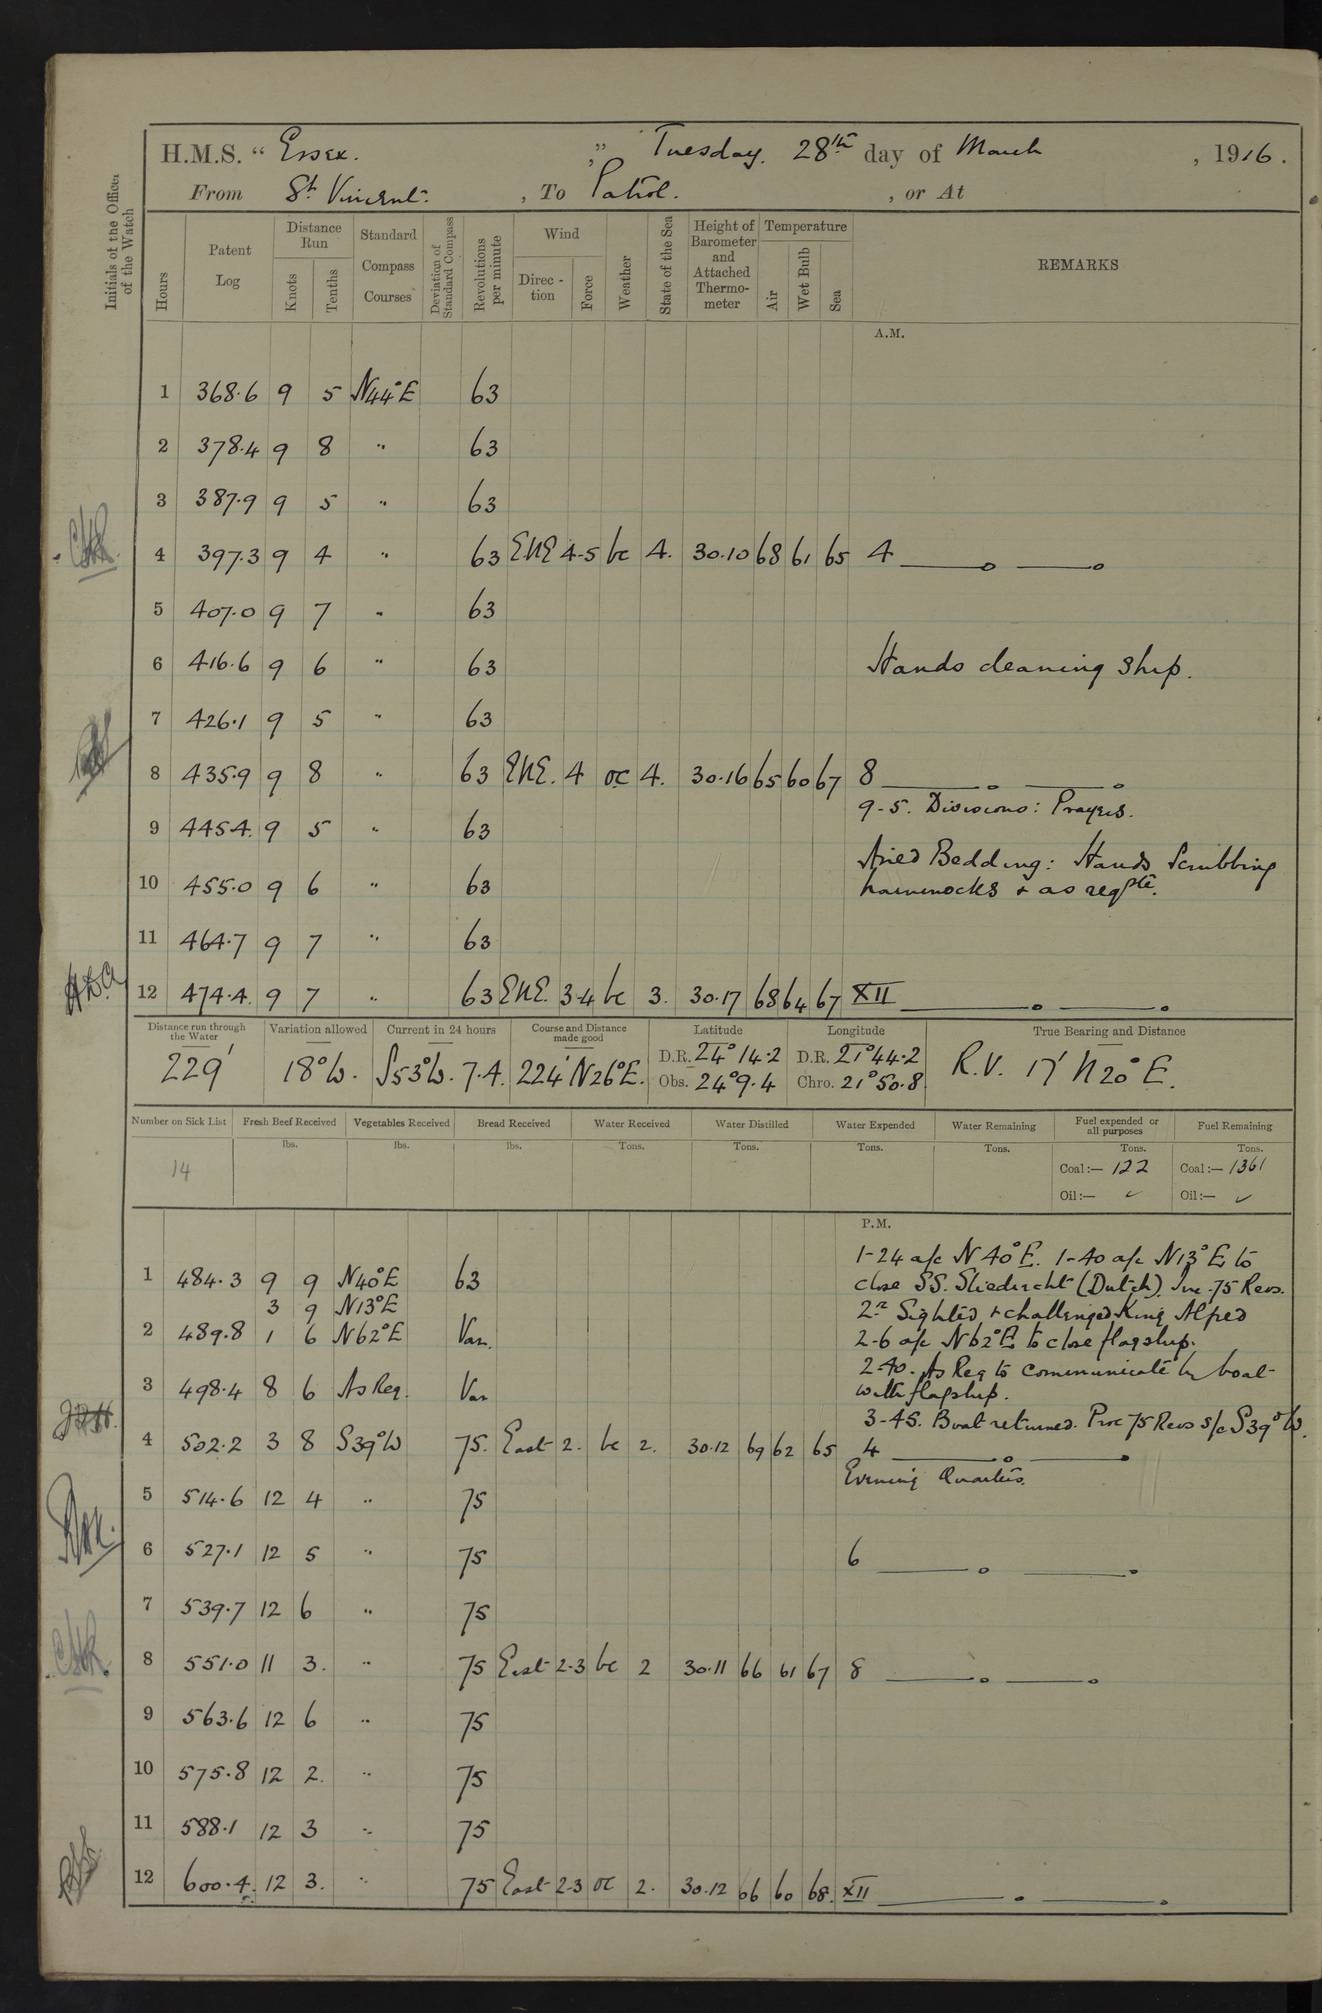 H.M.S. “ Essex. ,” Tuesday. 28th day of March , 1916.
From St Vincent. , To Patrol. , or At
Initials of the Officer of the Watch
Hours Patent Log Distance Run Knots Tenths Standard Compass Courses Deviation of Standard Compass Revolutions per minute Wind Direc-tion Force Weather State of the Sea Height of Barometer and Attached Thermo-meter Temperature Air Wet Bulb Sea REMARKS
A.M.
1 368.6 9 5 N44°E 63
2 378.4 9 8 " 63
3 387.9 9 5 " 63
4 397.3 9 4 " 63 ENE 4-5 bc 4. 30.10 68 61 65 4
5 407.0 9 7 " 63
6 416.6 9 6 " 63 Hands cleaning ship.
7 426.1 9 5 " 63
8 435.9 9 8 " 63 ENE. 4 oc 4. 30.16 65 60 67 8
9-5. Divisions: Prayers.
9 445.4. 9 5 " 63
Aired Bedding: Hands Scrubbing
10 455.0 9 6 " 63 hammocks & as reqste.
11 464.7 9 7 " 63
H.D.A. 12 474.4. 9 7 " 63 ENE. 3-4 bc 3. 30.17 68 64 67 XII
Distance run through the Water Variation allowed Current in 24 hours Course and Distance made good Latitude Longitude True Bearing and Distance
229' 18°W. S53°W. 7.A. 224' N26°E. D.R. 24° 14.2 D.R. 21° 44.2 R.V. 17' N20°E.
Obs. 24° 9.4 Chro. 21° 50.8
Number on Sick List Fresh Beef Received Vegetables Received Bread Received Water Received Water Distilled Water Expended Water Remaining Fuel expended or all purposes Fuel Remaining
lbs. lbs. lbs. Tons. Tons. Tons. Tons. Tons. Tons.
14 Coal:— 122 Coal:— 1361
Oil:— ✓ Oil:— ✓
P.M.
1-24 a/c N40°E. 1-40 a/c N13°E to
1 484.3 9 9 N40°E 63 close SS. Sliedrecht (Dutch). Inc. 75 Revs.
3 9 N13°E 2.0 Sighted & challenged King Alfred
2 489.8 1 6 N62°E Var. 2-6 a/c N62°E to close flagship.
2-40. As Req to communicate by boat
3 498.4 8 6 As Req. Var with flagship.
3-45. Boat returned. Proc 75 Revs s/c S39°W.
4 502.2 3 8 S39°W 75. East 2. bc 2. 30.12 69 62 65 4
Evening Quarters.
5 514.6 12 4 " 75
6 527.1 12 5 " 75 6
7 539.7 12 6 " 75
8 551.0 11 3. " 75 East 2.3 bc 2 30.11 66 61 67 8
9 563.6 12 6 " 75
10 575.8 12 2. " 75
11 588.1 12 3 " 75
12 600.4. 12 3. " 75 East 2.3 oc 2. 30.12 66 60 68. XII